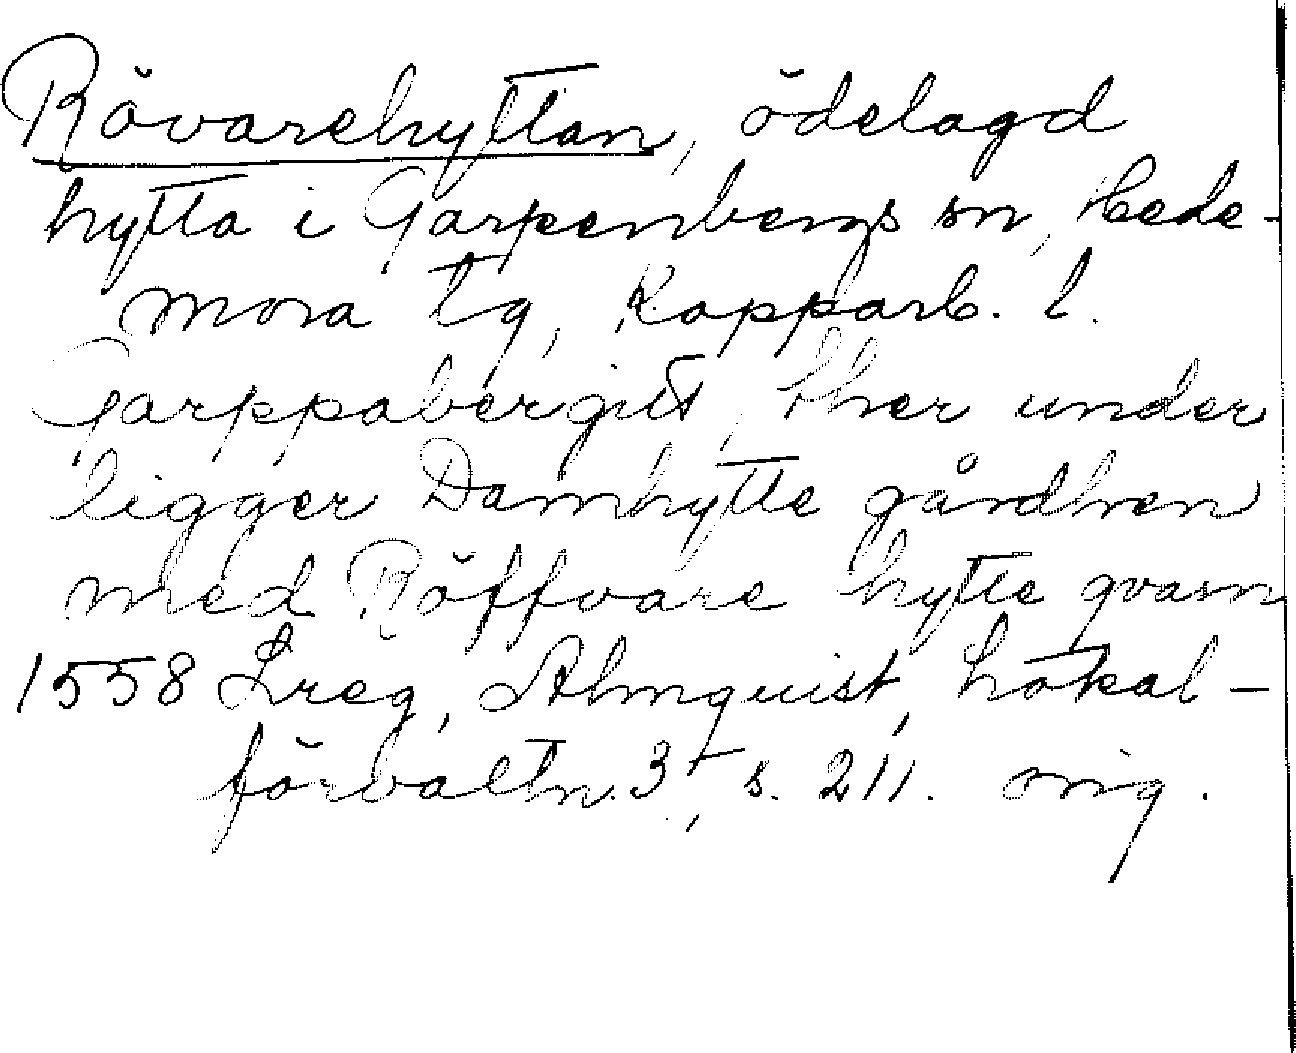 Rövarehyttan, ödelagd
hytta i Garpenbergs sn, Hede-
mora tg, Kopparb. l.
Garppabergit, ther under
ligger Damhytte gårdhen
med Röffvare hytte qvarn
1558 Lreg, Almquist, Lokal-
förvaltn. 3, s. 211. orig.